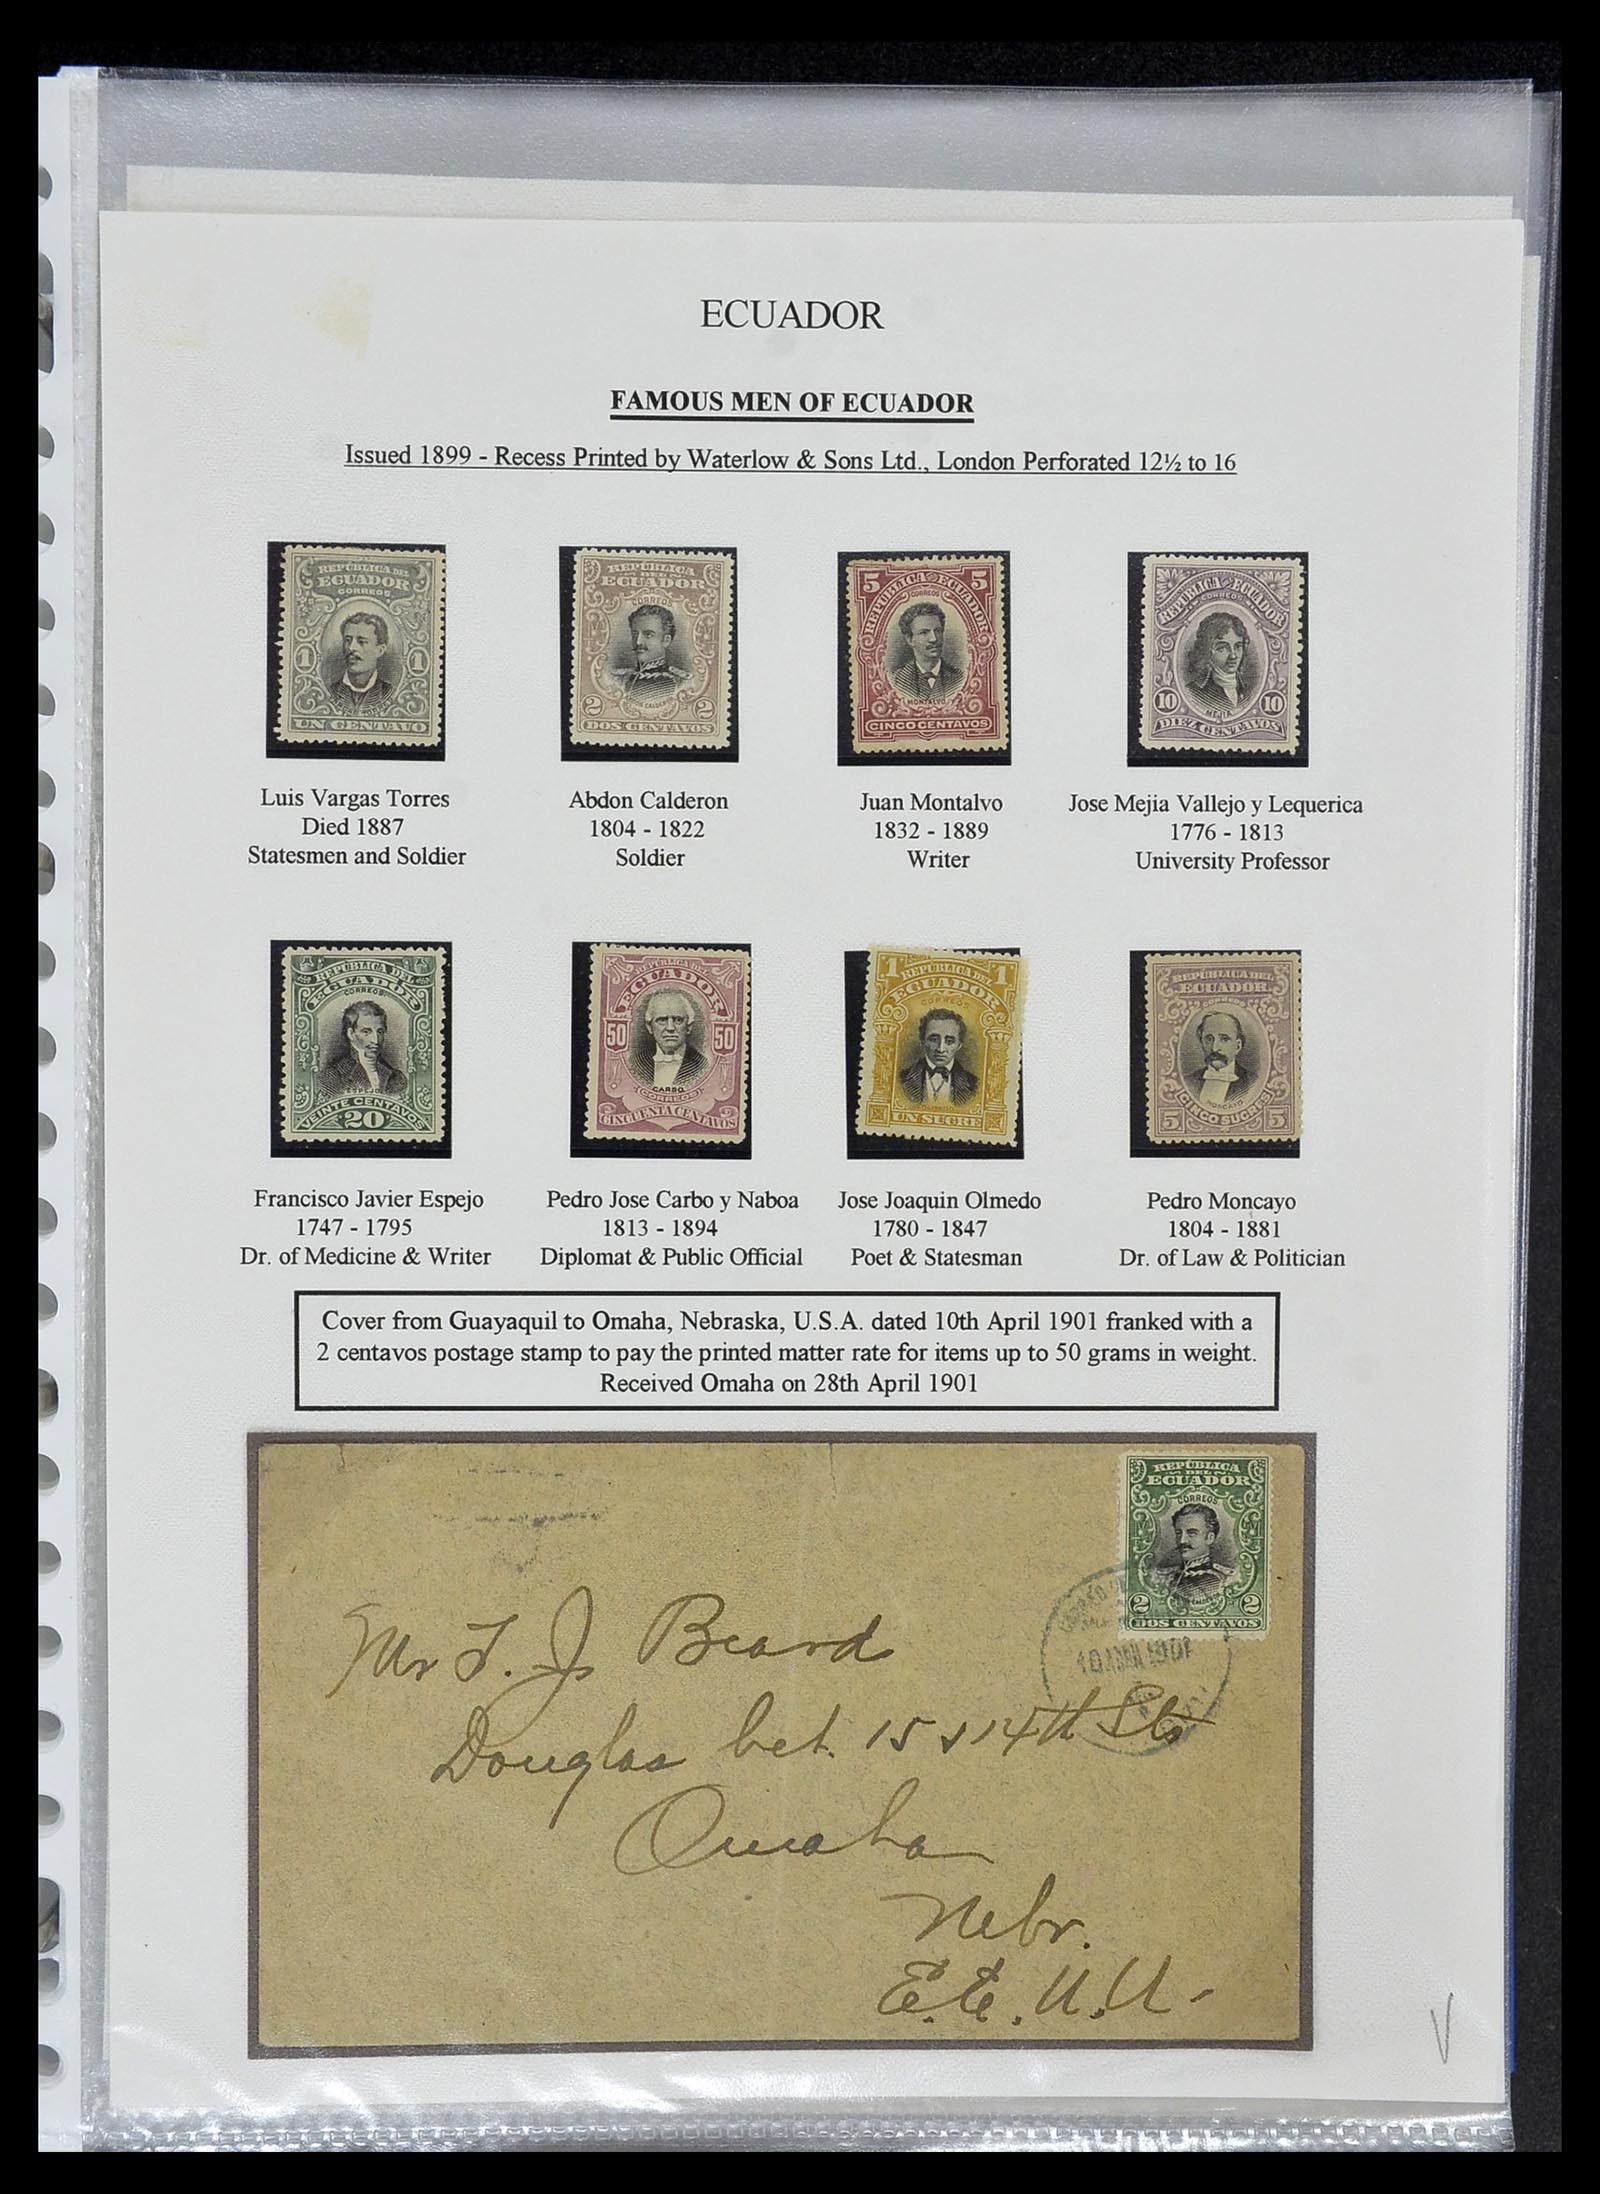 ECUADOR
FAMOUS MEN OF ECUADOR
Issued 1899 - Recess Printed by Waterlow & Sons Ltd., London Perforated 12½ to 16
REPUBLICA DEL
ECUADOR
CORREOS
1 1
UN CENTAVO
REPUBLICA
DEL
ECUADOR
CORREOS
2 2
DOS CENTAVOS
5 5
REPUBLICA DEL ECUADOR
CORREOS
MONTALVO
CINCO CENTAVOS
REPUBLICA DEL ECUADOR
CORREOS
10 10
MEJIA
DIEZ CENTAVOS
Luis Vargas Torres
Died 1887
Statesmen and Soldier
Abdon Calderon
1804 - 1822
Soldier
Juan Montalvo
1832 - 1889
Writer
Jose Mejia Vallejo y Lequerica
1776 - 1813
University Professor
REPUBLICA DEL
ECUADOR
CORREOS
ESPEJO
VEINTE CENTAVOS
20
REPUBLICA DEL
ECUADOR
50 50
CARBO
CORREOS
CINCUENTA CENTAVOS
1 1
REPUBLICA DEL
ECUADOR
CORREOS
UN SUCRE
REPUBLICA DEL
ECUADOR
CORREOS
MONCAYO
5 5
CINCO SUCRES
Francisco Javier Espejo
1747 - 1795
Dr. of Medicine & Writer
Pedro Jose Carbo y Naboa
1813 - 1894
Diplomat & Public Official
Jose Joaquin Olmedo
1780 - 1847
Poet & Statesman
Pedro Moncayo
1804 - 1881
Dr. of Law & Politician
Cover from Guayaquil to Omaha, Nebraska, U.S.A. dated 10th April 1901 franked with a
2 centavos postage stamp to pay the printed matter rate for items up to 50 grams in weight.
Received Omaha on 28th April 1901
REPUBLICA
DEL
ECUADOR
CORREOS
2 2
DOS CENTAVOS
Mr T. J. Beard
Douglas bet. 15 & 14th Sts
Omaha
Nebr.
E.E. U.U.
V